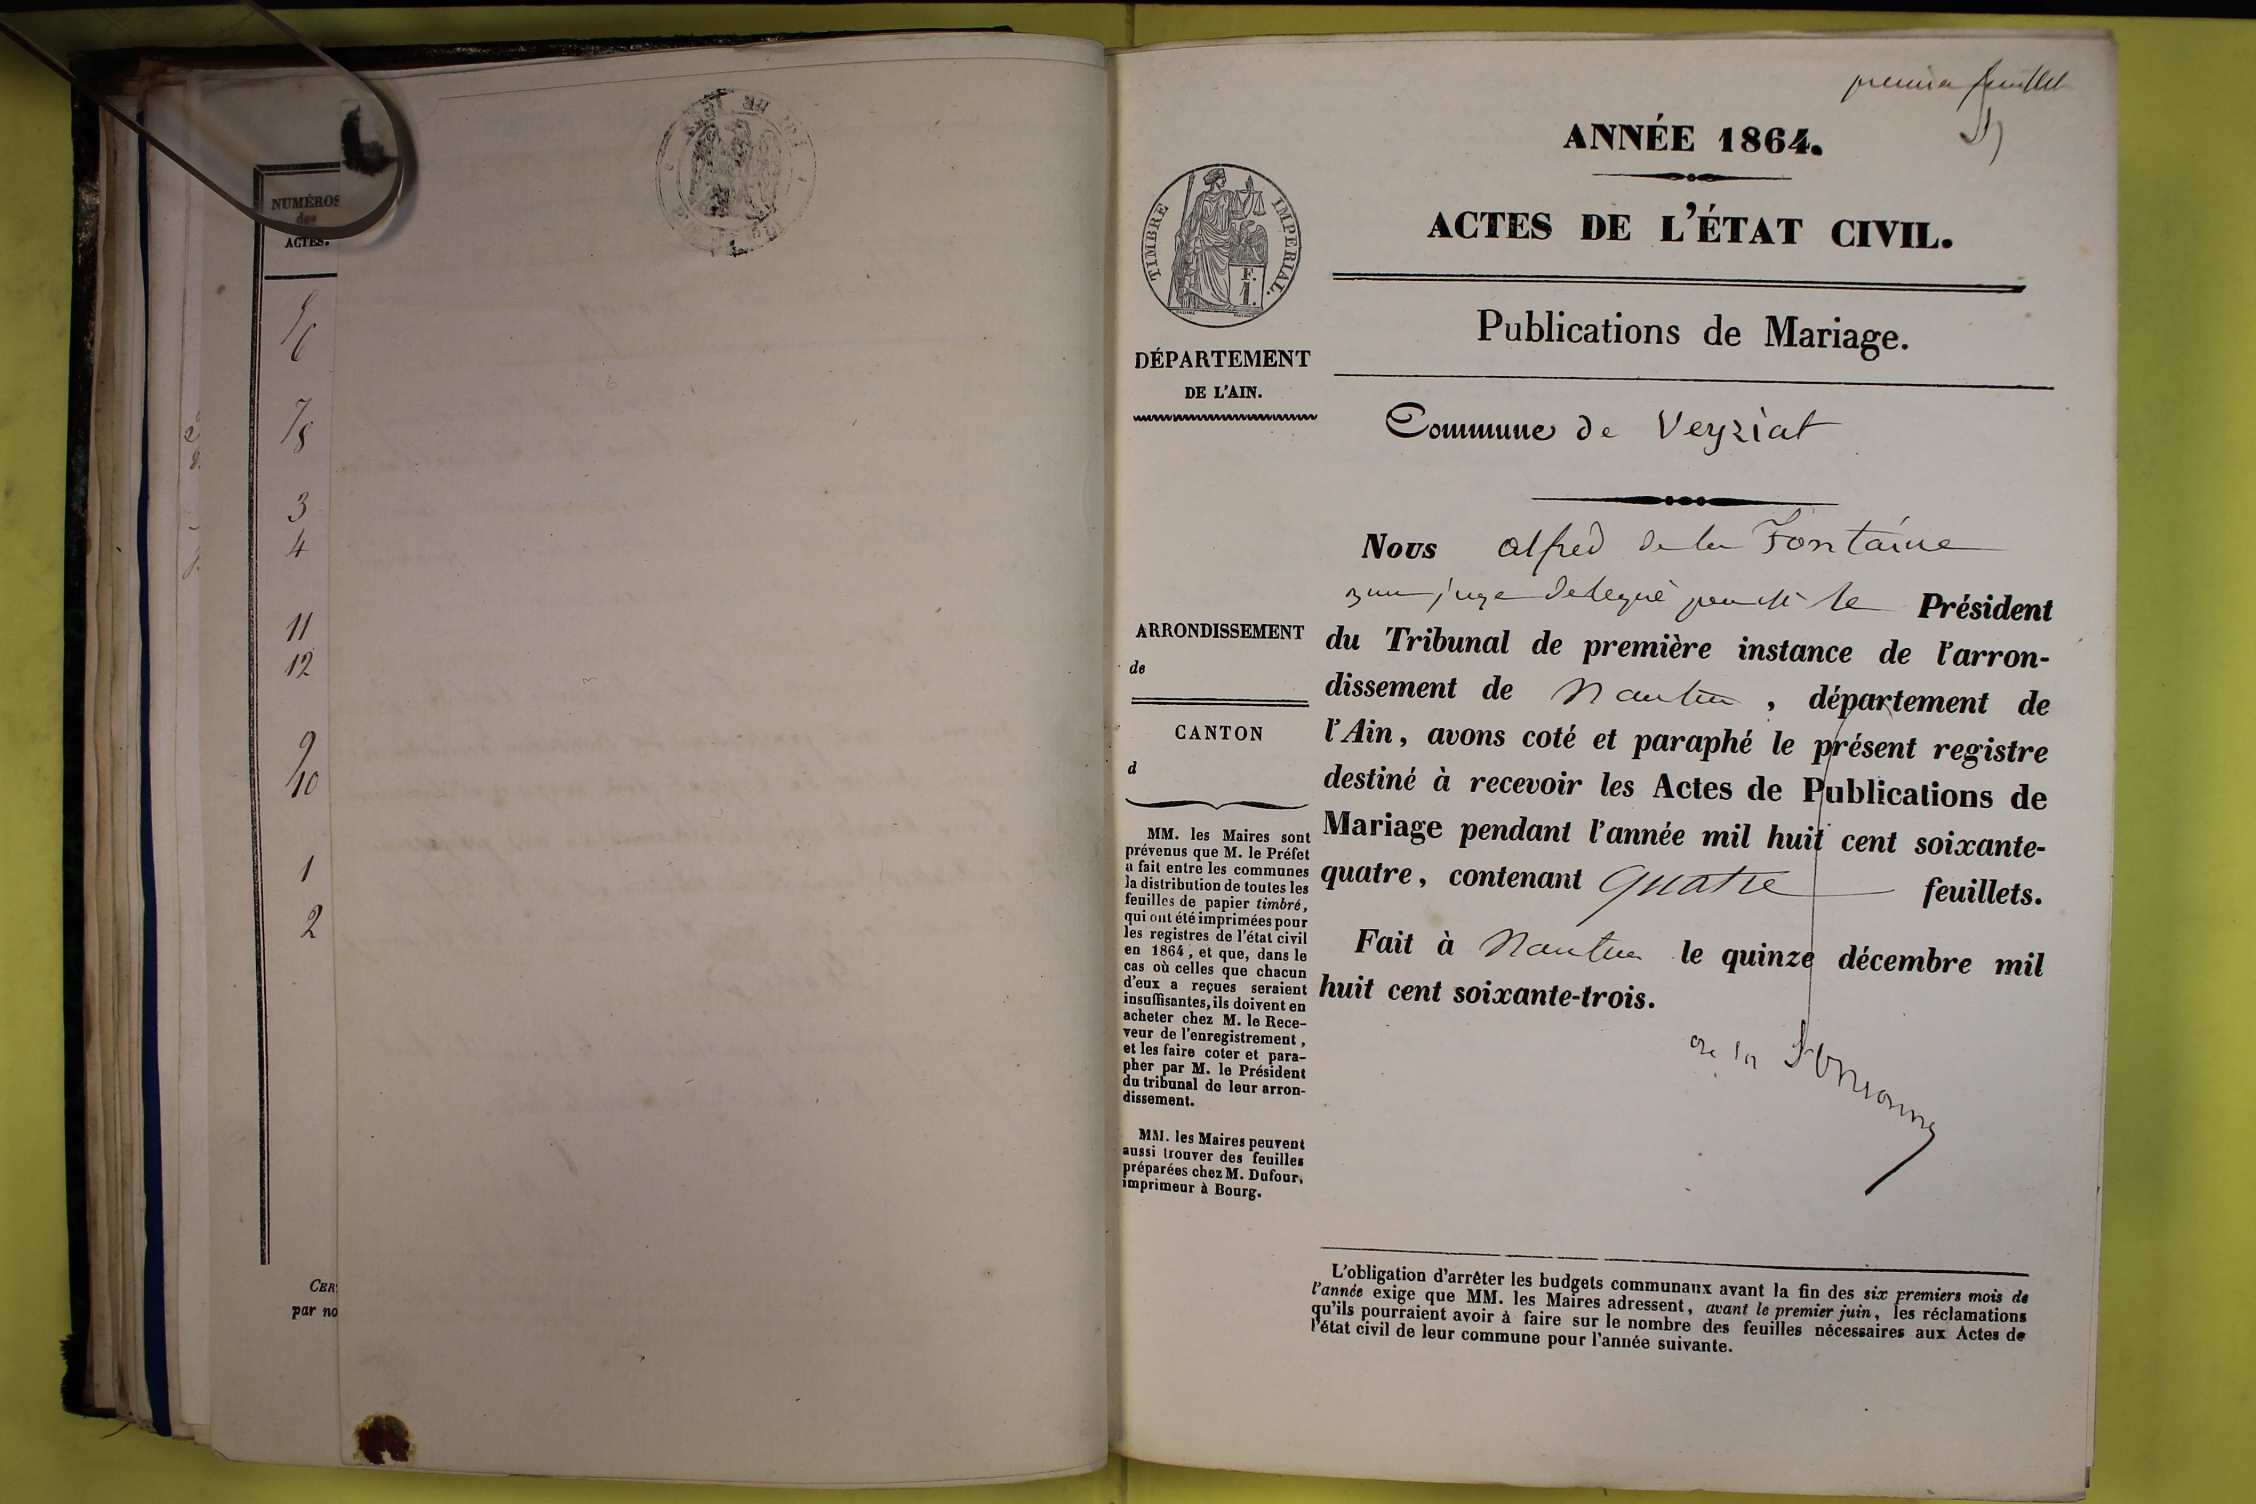 NUMÉROS
des
ACTES.
5
6
7
8
3
4
11
12
9
10
1
2
CER
par no
premier feuillet
ANNÉE 1864.
ACTES DE L'ÉTAT CIVIL.
TIMBRE IMPERIAL.
F.
1.
Publications de Mariage.
DÉPARTEMENT
DE L'AIN.
Commune de Veyziat
ARRONDISSEMENT
de
CANTON
d
MM. les Maires sont
prévenus que M. le Préfet
a fait entre les communes
la distribution de toutes les
feuilles de papier timbré,
qui ont été imprimées pour
les registres de l'état civil
en 1864, et que, dans le
cas où celles que chacun
d'eux a reçues seraient
insuffisantes, ils doivent en
acheter chez M. le Rece-
veur de l'enregistrement,
et les faire coter et para-
pher par M. le Président
du tribunal de leur arron-
dissement.
MM. les Maires peuvent
aussi trouver des feuilles
préparées chez M. Dufour,
imprimeur à Bourg.
Nous alfred de la Fontaine
juge delegué le Président
du Tribunal de première instance de l'arron-
dissement de Nantua, département de
l'Ain, avons coté et paraphé le présent registre
destiné à recevoir les Actes de Publications de
Mariage pendant l'année mil huit cent soixante-
quatre, contenant quatre feuillets.
Fait à Nantua le quinze décembre mil
huit cent soixante-trois.
de la
L'obligation d'arrêter les budgets communaux avant la fin des six premiers mois de
l'année exige que MM. les Maires adressent, avant le premier juin, les réclamations
qu'ils pourraient avoir à faire sur le nombre des feuilles nécessaires aux Actes de
l'état civil de leur commune pour l'année suivante.